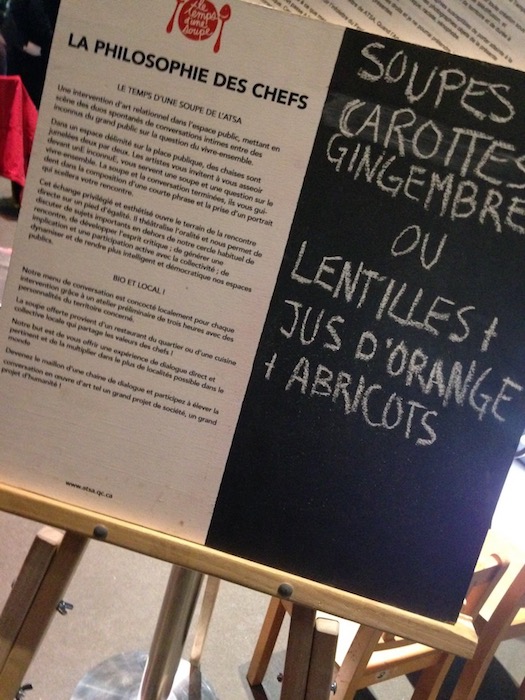 le
temps
d'une
soupe
LA PHILOSOPHIE DES CHEFS
LE TEMPS D'UNE SOUPE DE L'ATSA
Une intervention d'art relationnel dans l'espace public, mettant en
scène des duos spontanés de conversations intimes entre des
inconnus du grand public sur la question du vivre-ensemble.
Dans un espace délimité sur la place publique, des chaises sont
jumelées deux par deux. Les artistes vous invitent à vous asseoir
devant un(e) inconnu(e), vous servent une soupe et une question sur le
dent ensemble. La soupe et la conversation terminées, ils vous gui-
dent dans la composition d'une courte phrase et la prise d'un portrait
qui scellera votre rencontre.
Cet échange privilégié et esthétisé ouvre le terrain de la rencontre
directe sur un pied d'égalité. Il théâtralise l'oralité et nous permet de
discuter de sujets importants en dehors de notre cercle habituel de
rencontre, de développer l'esprit critique ; de générer une
implication et une participation active avec la collectivité ; de
dynamiser et de rendre plus intelligent et démocratique nos espaces
publics.
BIO ET LOCAL !
Notre menu de conversation est concocté localement pour chaque
intervention grâce à un atelier préliminaire de trois heures avec des
personnalités du territoire concerné.
La soupe offerte provient d'un restaurant du quartier ou d'une cuisine
collective locale qui partage les valeurs des chefs !
Notre but est de vous offrir une expérience de dialogue direct et
pertinent et de la multiplier dans le plus de localités possible dans le
monde
Devenez le maillon d'une chaîne de dialogue et participez à élever la
conversation en œuvre d'art tel un grand projet de société, un grand
projet d'humanité !
www.atsa.qc.ca
SOUPES
CAROTTES
GINGEMBRE
OU
LENTILLES +
JUS D'ORANGE
+ ABRICOTS